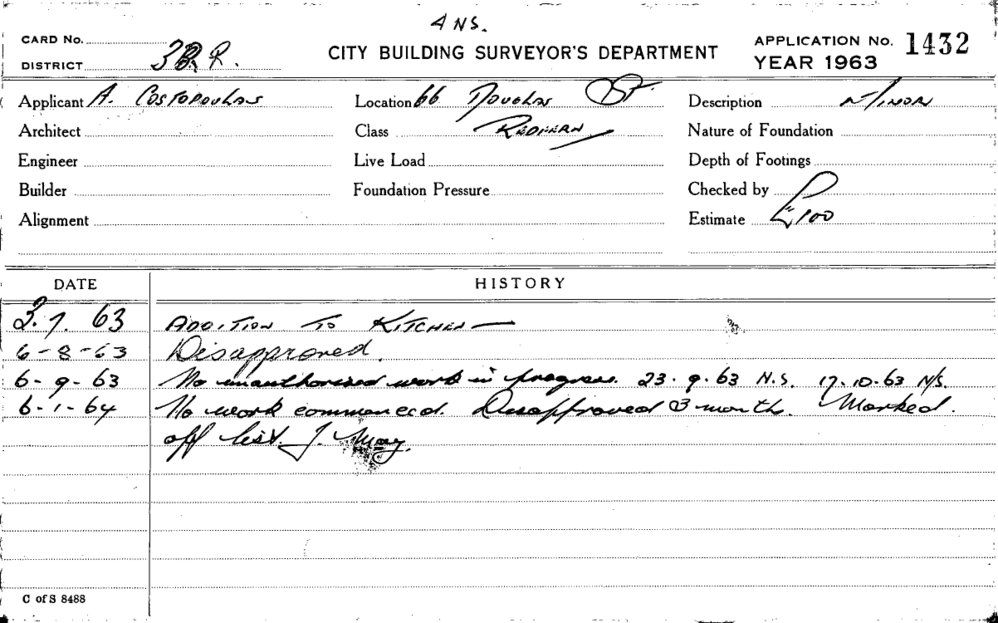 4 NS.
CARD No.
DISTRICT 3B.R.
CITY BUILDING SURVEYOR'S DEPARTMENT
APPLICATION No. 1432
YEAR 1963
Applicant A. Costopoulos
Location 66 Douglas St.
Description Minor
Architect
Class Redfern
Nature of Foundation
Engineer
Live Load
Depth of Footings
Builder
Foundation Pressure
Checked by
Alignment
Estimate £100
DATE HISTORY
3.7.63 Addition to Kitchen
6-8-63 Disapproved.
6-9-63 No unauthorised work in progress. 23.9.63 N.S. 17.10.63 N/S.
6-1-64 No work commenced. Disapproved 3 months. Marked
off list. J. May.
C of S 8488